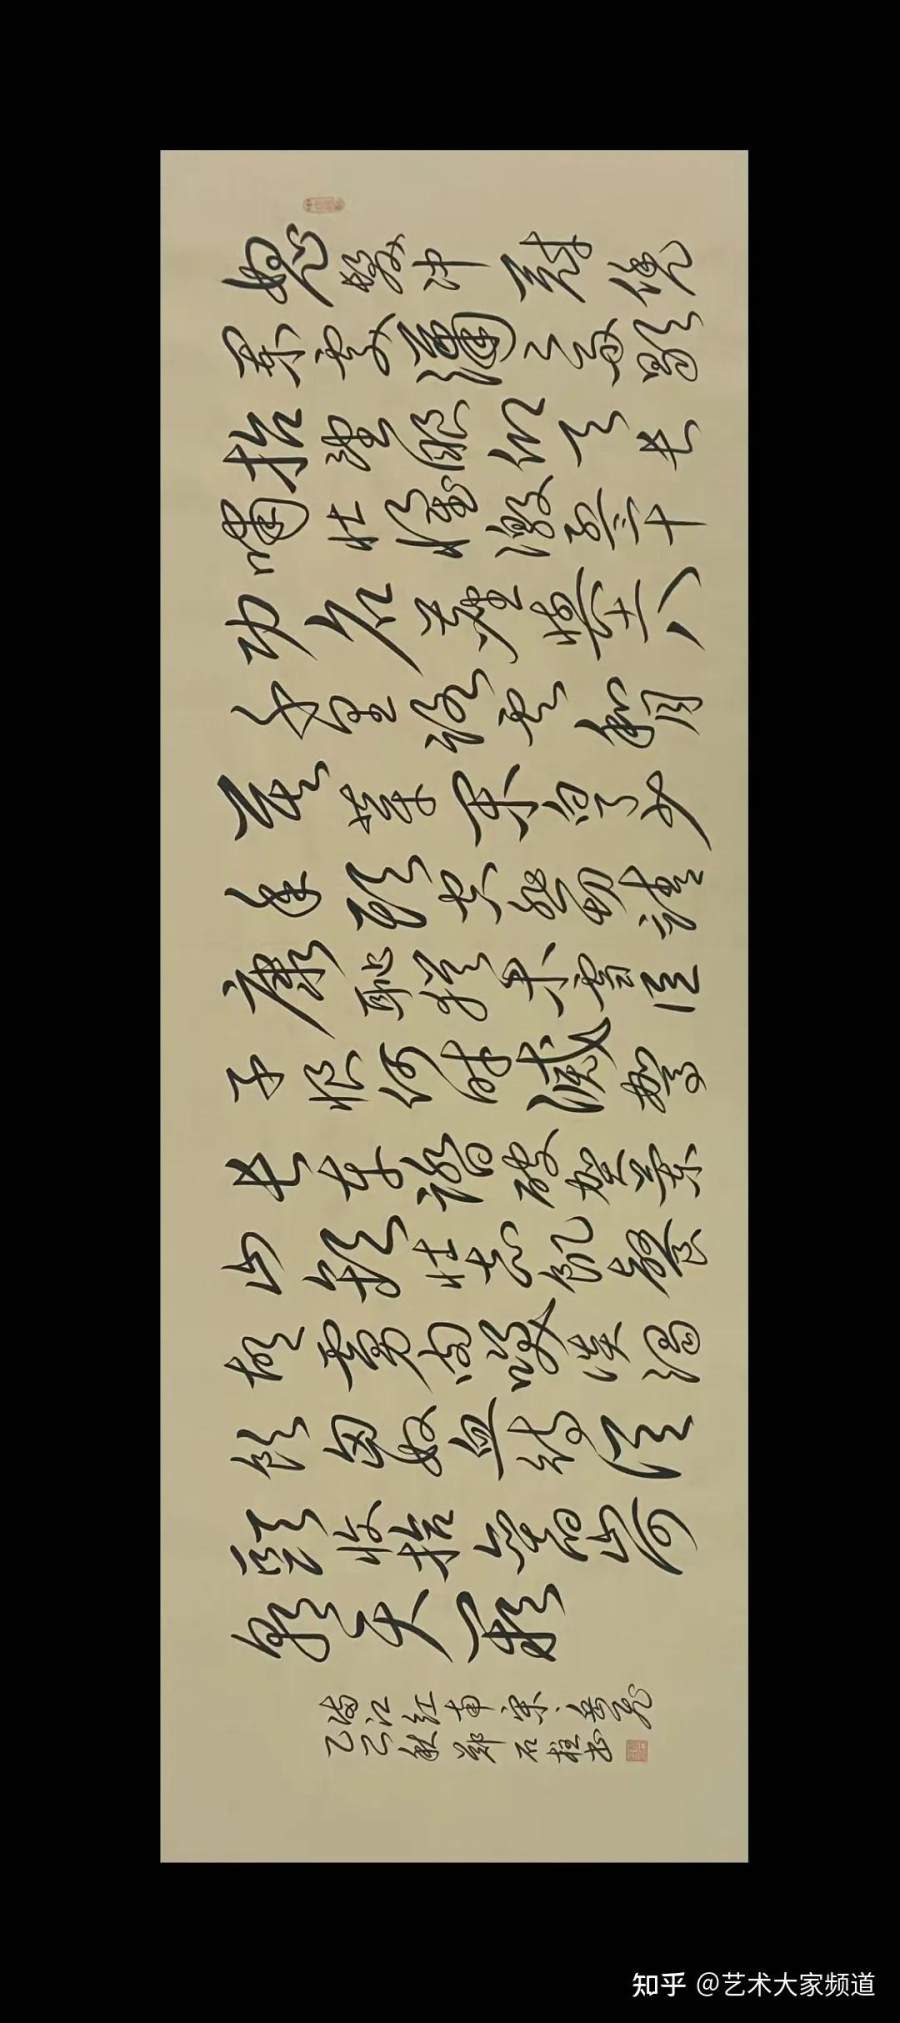 怒髮冲冠凭
阑处潇潇雨歇
抬望眼仰天长
啸壮怀激烈三十
功名尘与土八
千里路云和月
莫等闲白了少
年头空悲切靖
康耻犹未雪臣
子恨何时灭驾
长车踏破贺兰
山缺壮志饥餐
胡虏肉笑谈渴
饮匈奴血待从
头收拾旧山河
朝天阙
满江红南宋岳飞
乙巳秋郑石柱书
知乎 @艺术大家频道